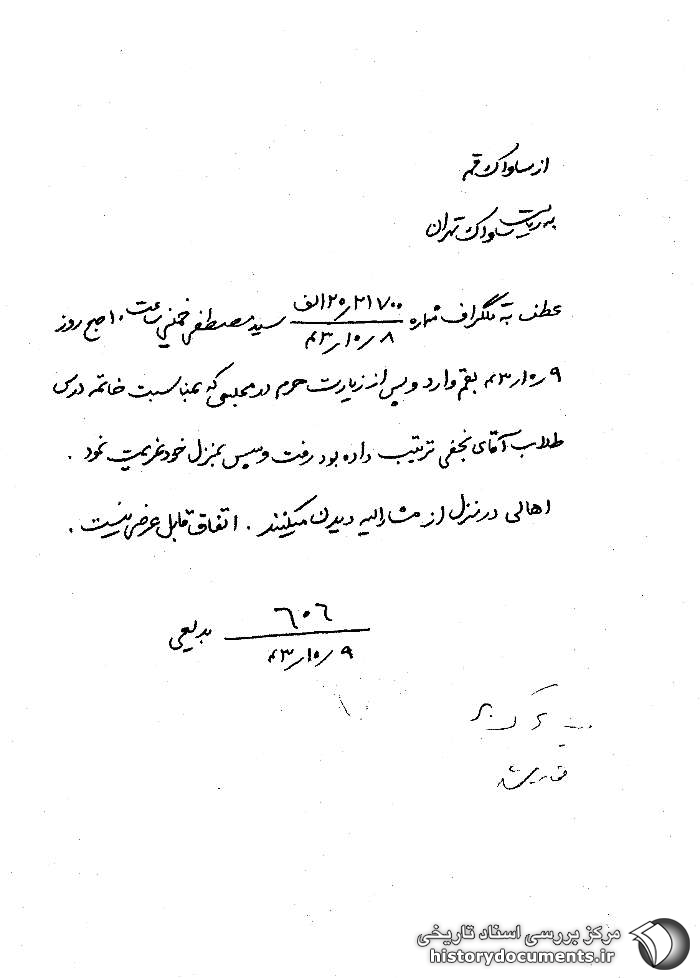 از ساواک قم
به ریاست ساواک تهران
عطف به تلگراف شماره ۲۵/۲۱۷۰۰الف سید مصطفی خمینی ساعت ۱۰ صبح روز
۴۳/۱۰/۸
۴۳/۱۰/۹ بقم وارد و پس از زیارت حرم در مجلسی که بمناسبت خاتمه درس
طلاب آقای نجفی ترتیب داده بود رفت و سپس بمنزل خود عزیمت نمود .
اهالی در منزل از مشارالیه دیدن میکنند . اتفاق قابل عرضی نیست .
۶۰۶ بدیعی
۴۳/۱۰/۹
مرکز بررسی اسناد تاریخی
historydocuments.ir